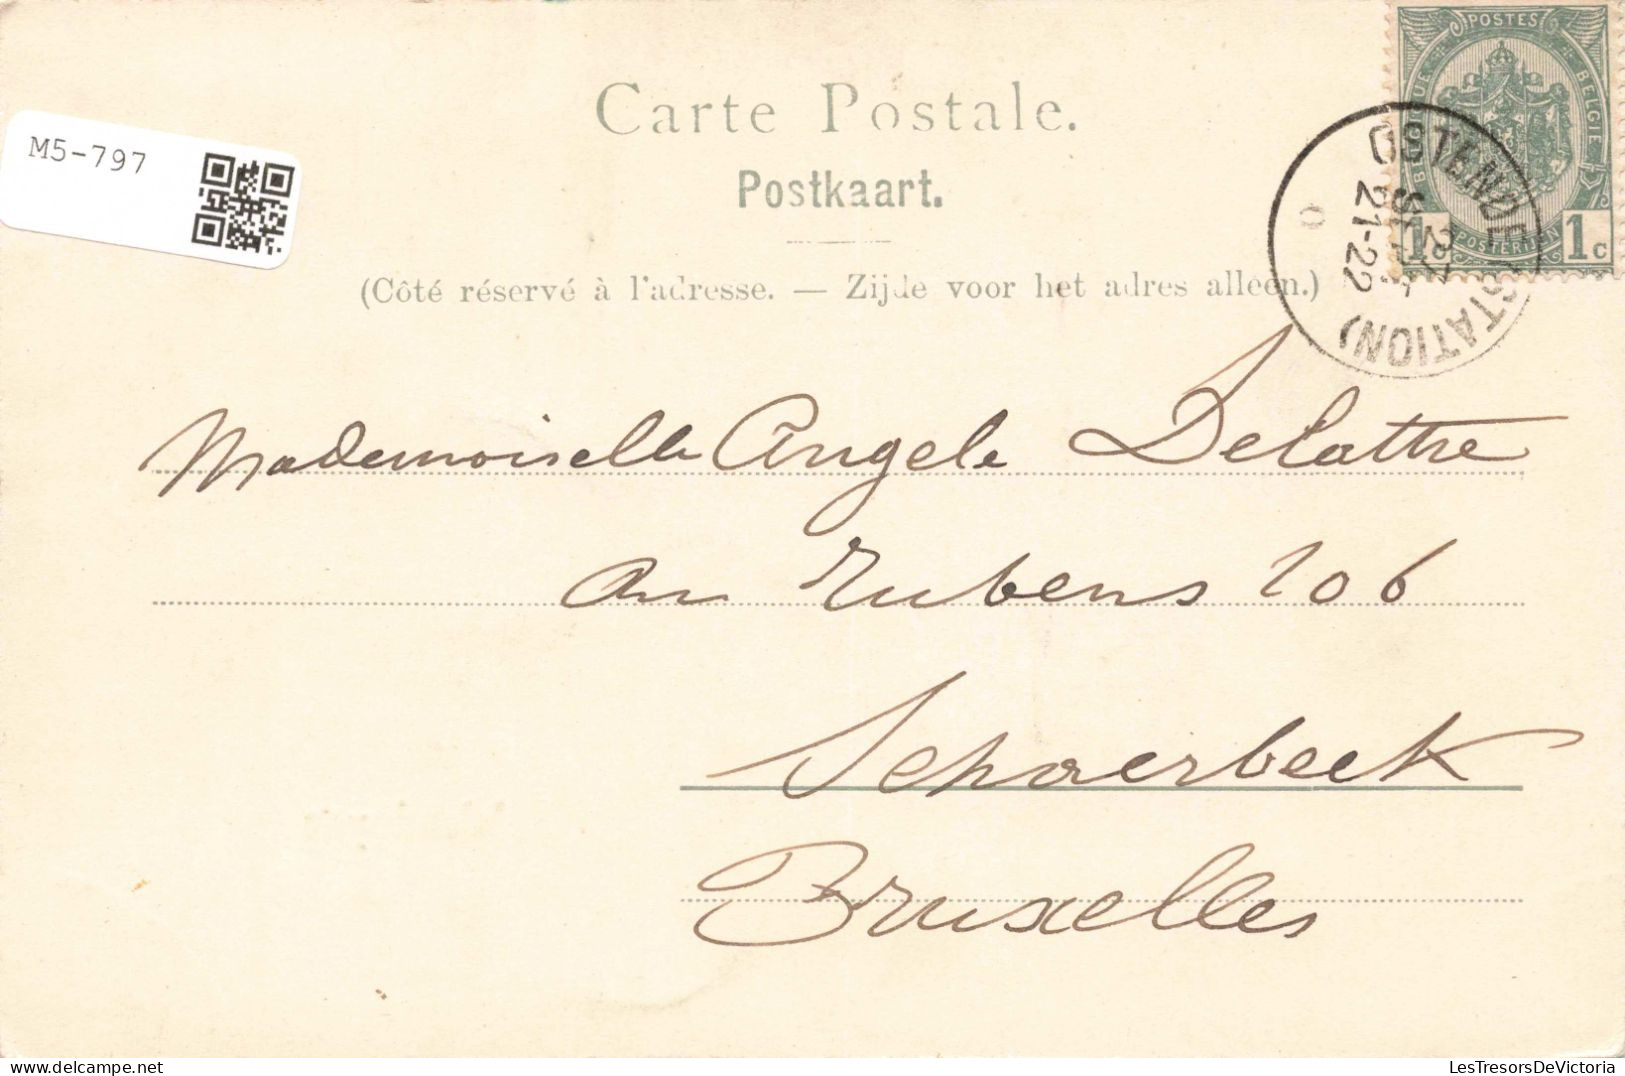 M5-797
Carte Postale.
Postkaart.
(Côté réservé à l'adresse. — Zijde voor het adres alleen.)
POSTES
BELGIQUE
BELGIË
1c POSTERIJEN 1c
OSTENDE (STATION)
21-22
Mademoiselle Angele Delattre
Rubens 206
Schaerbeek
Bruxelles
LesTresorsDeVictoria